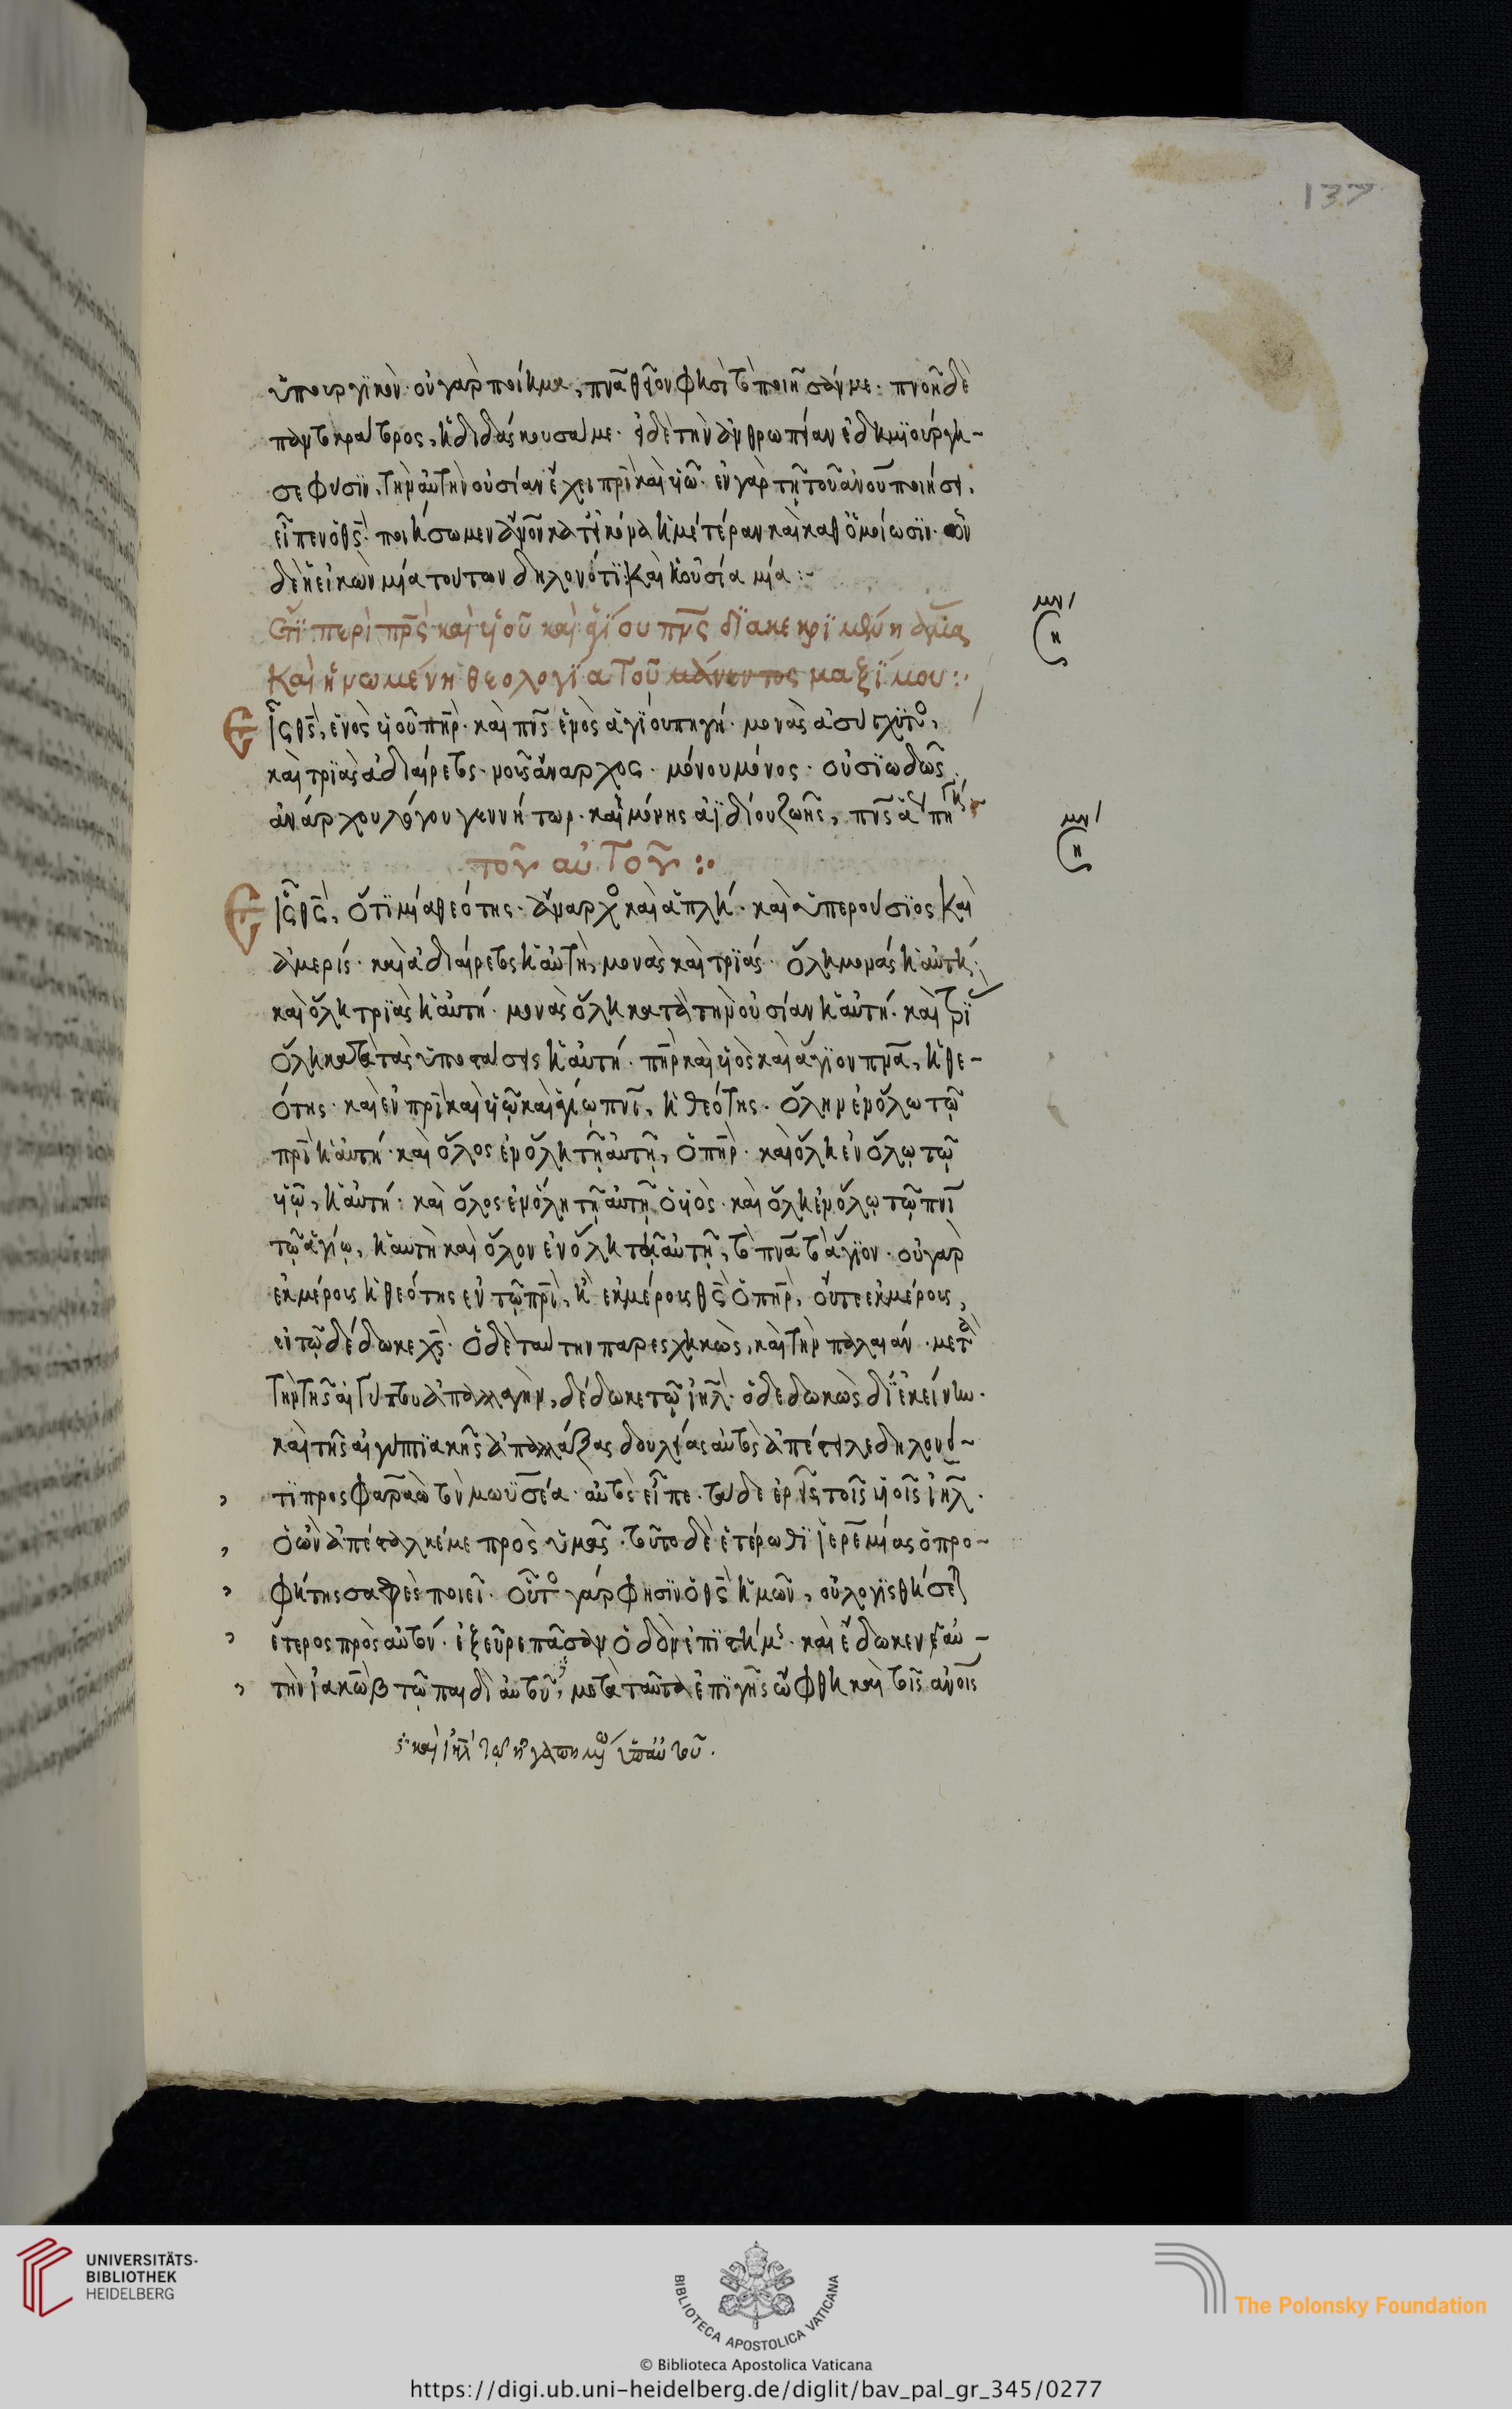 137
ὑπουργικὸν· οὐ γὰρ ποίημα, πνα̅ θεῖον φησὶ τὸ ποιῆσάν με· πνοὴ δὲ
παντοκράτορος, ἡ διδάσκουσά με· εἰ δὲ τὴν ἀνθρωπείαν ἐδημιούργη-
σε φύσϊν, τὴν αὐτὴν οὐσίαν ἔχει πρὶ̅ καὶ υἱῶ̅· ἐν γὰρ τῆ τοῦ ἀνου̅ ποιήσει,
εἶπεν ὁ θς̅· ποιήσωμεν ἄνον̅ κατ' εἰκόνα ἡμετέραν καὶ καθ' ὁμοίωσϊν· ὧν
δὲ ἡ εἰκὼν μία τούτων δηλονότϊ καὶ ἡ οὐσία μία :~
Ὅτϊ περὶ πρς̅ καὶ υἱοῦ καὶ ἁγίου πνς̅ διακεκριμένη ἅμα
καὶ ἡνωμένη θεολογία τοῦ μαξίμου :·
μν/
η
Εἷς θς̅, ἑνὸς υἱοῦ πηρ̅· καὶ πνς̅ ἑνὸς ἁγίου πηγή· μονὰς ἀσύγχυτος,
καὶ τριὰς ἀδιαίρετος· νοῦς ἄναρχος· μόνου μόνος· οὐσϊωδῶς
ἀνάρχου λόγου γεννήτωρ· καὶ μόνης ἀϊδίου ζωῆς, πνς̅ ἁγίου πηγή
μν/
η
τοῦ αὐτοῦ :·
Εἷς θς̅, ὅτϊ μία θεότης· ἄναρχος καὶ ἁπλή· καὶ ὑπερούσϊος καὶ
ἀμερίς· καὶ ἀδιαίρετος ἡ αὐτὴ, μονὰς καὶ τριάς· ὅλη μονὰς ἡ αὐτή·
καὶ ὅλη τριὰς ἡ αὐτή· μονὰς ὅλη κατὰ τὴν οὐσίαν ἡ αὐτή· καὶ τρϊὰς
ὅλη κατὰ τὰς ὑποστάσεις ἡ αὐτή· πηρ̅ καὶ υἱὸς καὶ ἅγϊον πνα̅, ἡ θε-
ότης· καὶ ἐν πρὶ̅ καὶ υἱῶ καὶ ἁγίω πνϊ̅, ἡ θεότης· ὅλη ἐν ὅλω τῶ
πρὶ̅ ἡ αὐτή· καὶ ὅλος ἐν ὅλη τῆ αὐτῆ, ὁ πηρ̅· καὶ ὅλη ἐν ὅλω τῶ
υἱῶ, ἡ αὐτή· καὶ ὅλος ἐν ὅλη τῆ αὐτῆ ὁ υἱὸς· καὶ ὅλη ἐν ὅλω τῶ πνϊ̅
τῶ ἁγίω, ἡ αὐτὴ καὶ ὅλον ἐν ὅλη τῆ αὐτῆ, τὸ πνα̅ τὸ ἅγϊον· οὐ γὰρ
ἐκ μέρους ἡ θεότης ἐν τῶ πρὶ̅, ἢ ἐκ μέρους θς̅ ὁ πηρ̅, οὔτε ἐκ μέρους,
ἐν τῶ δέδωκε χς̅· ὁ δὲ ταύτην παρεσχηκὼς, καὶ τὴν παλαιάν· μετὰ
τὴν τῆς αἰγύπτου ἀπαλλαγὴν, δέδωκε τῶ ιηλ̅· ὁ δεδωκὼς δι' ἐκείνην·
καὶ τῆς αἰγυπτϊακῆς ἀπαλλάξας δουλείας αὐτὸς ἀπέστειλε δηλονό-
τϊ πρὸς φαραὼ τὸν μωϋσέα· αὐτὸς εἶπε· τάδε ἐρεῖς τοῖς υἱοῖς ιηλ̅·
ὁ ὢν ἀπέσταλκέ με πρὸς ὑμᾶς· τοῦτο δὲ ἑτέρωθϊ ἱερεμίας ὁ προ-
φήτης σαφὲς ποιεῖ· οὗτος γάρ φησϊν ὁ θς̅ ἡμῶν, οὐ λογϊσθήσεται
ἕτερος πρὸς αὐτόν· ἐξεῦρε πᾶσαν ὁδὸν ἐπϊστήμης· καὶ ἔδωκεν αὐ-
τὴν ἰακὼβ τῶ παιδὶ αὐτοῦ, μετὰ ταῦτα ἐπὶ γῆς ὤφθη καὶ τοῖς ἀνοις̅
καὶ ιηλ̅ τῶ ἠγαπημένω ὑπ' αὐτοῦ.
UNIVERSITÄTS-
BIBLIOTHEK
HEIDELBERG
BIBLIOTECA APOSTOLICA VATICANA
The Polonsky Foundation
© Biblioteca Apostolica Vaticana
https://digi.ub.uni-heidelberg.de/diglit/bav_pal_gr_345/0277